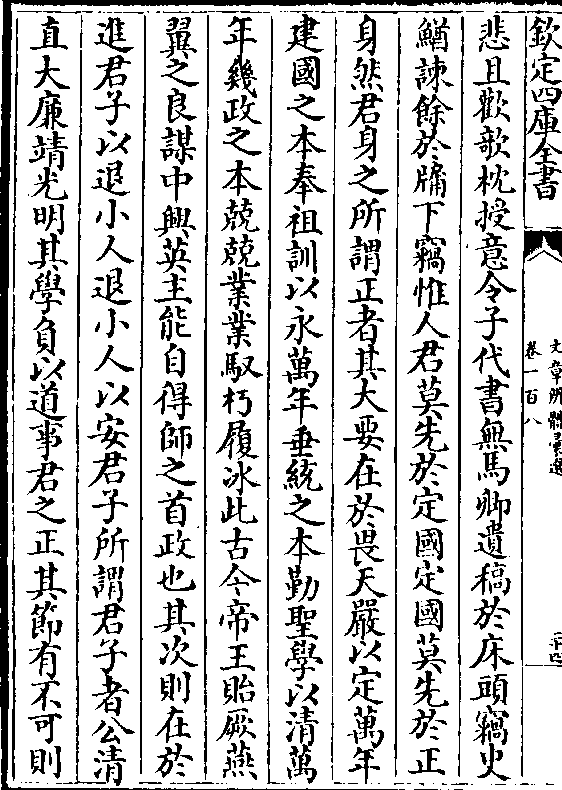 欽定四庫全書
文章辨體彙選
卷一百八
二十四
悲且歡歌枕授意令子代書無馬卿遺稿於床頭竊史
鰌諫餘於牖下竊惟人君莫先於定國定國莫先於正
身然君身之所謂正者其大要在於畏天嚴以定萬年
建國之本奉祖訓以永萬年垂統之本勤聖學以清萬
年幾政之本兢兢業業馭朽履冰此古今帝王貽厥燕
翼之良謀中興英主能自得師之首政也其次則在於
進君子以退小人退小人以安君子所謂君子者公清
直大廉靖光明其學負以道事君之正其節有不可則